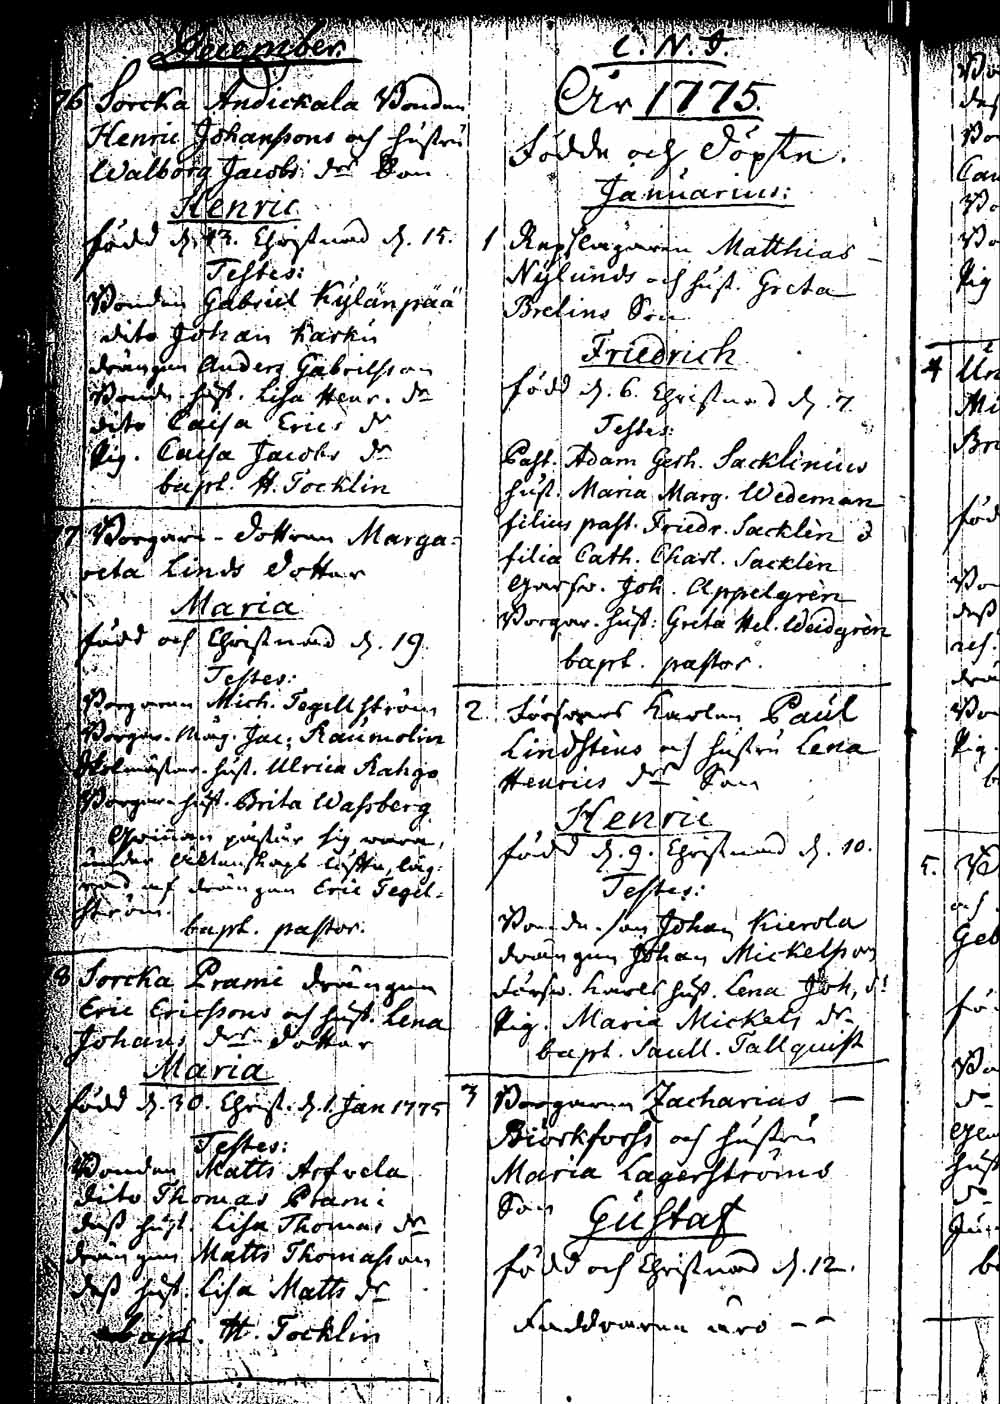 December.
76 Sorcka Andickala Bonden
Henric Johanssons och hustru
Walborg Jacobs dr Son
Henric
född d. 13. Christnad d. 15.
Testes:
Bonden Gabriel Kylänpää
dito Johan Karku
drängen Anders Gabrielsson
Bonde hust. Lisa Henr. dr
dito Caisa Erics dr
Pig. Caisa Jacobs dr
bapt. H. Tocklin
77 Borgare-dottren Marga-
reta Linds dotter
Maria
född och Christnad d. 19.
Testes:
Borgaren Mich. Tegelström
Borgar. Mag. Jac. Raumolin
hust. Ulrica Rahgo
Borgar. hust. Brita Wassberg
Qwinnan påstår sig wara,
under äktenskaps löffte, läg-
rad af drängen Eric Tegel-
ström.
bapt. pastor.
78 Sorcka Prami drängen
Eric Ericssons och hust. Lena
Johans dr dotter
Maria
född d. 30. Christ. d. 1. Jan 1775
Testes:
Bonden Matts Arfvela
dito Thomas Prami
dess hust. Lisa Thomas dr
drängen Matts Thomasson
dess hust. Lisa Matts dr
bapt. H. Tocklin
I. N. J.
År 1775.
Födde och Döpte.
Januarius:
1 Repslagaren Matthias
Nylunds och hust. Greta
Brelins Son
Friedrich
född d. 6. Christnad d. 7.
Testes:
Past. Adam Gerh. Sacklinius
hust. Maria Marg. Wedeman
filius past. Friedr. Sacklèn
filia Cath. Charl. Sacklèn
Joh. Appelgrèn
Borgar. hust. Greta Hel. Weidgrèn
bapt. pastor.
2. Försvars Karlen Paul
Lindstèns och hustru Lena
Henrics dr Son
Henric
född d. 9. Christnad d. 10.
Testes:
Bonde-son Johan Kierola
drängen Johan Mickelsson
Försv. Karls hust. Lena Joh. dr
Pig. Maria Mickels dr
bapt. Saull. Tallquist
3 Borgaren Zacharias
Biörkforss och hustru
Maria Lagerströms
Son
Gustaf
född och Christnad d. 12.
Faddrarne äro
4
5.